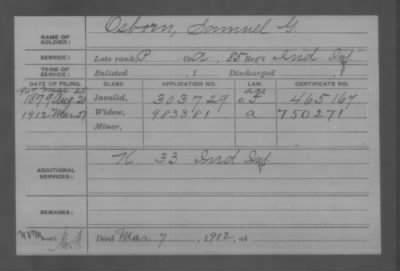 NAME OF SOLDIER: Osborn, Samuel G.
SERVICE: Late rank, P Co. A, 85 Reg't Ind Inf.
TERM OF SERVICE: Enlisted , 1 Discharged , 1
DATE OF FILING. CLASS. APPLICATION NO. LAW. CERTIFICATE NO.
age
1879 Aug 21 Invalid, 303729 465167
1912 Mar 27 Widow, 983381 a 750271
Minor,
ADDITIONAL SERVICES: K 33 Ind. Inf.
REMARKS:
Died Mar 7, 1912, at